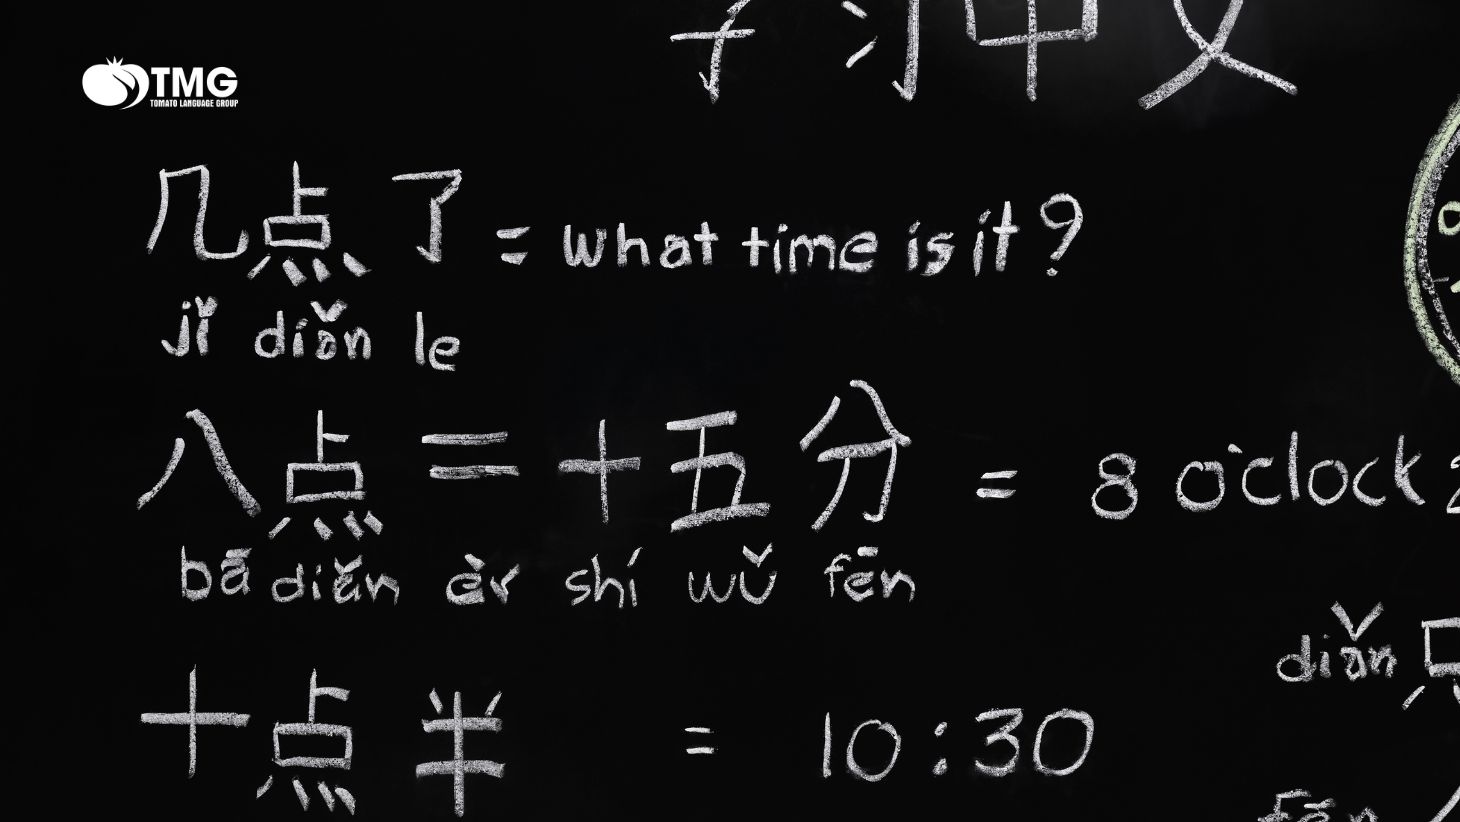 TMG
TOMATO LANGUAGE GROUP
学习中文
几点了 = what time is it?
jǐ diǎn le
八点二十五分 = 8 o'clock 2
bā diǎn èr shí wǔ fēn
diǎn 点
十点半 = 10:30
fēn